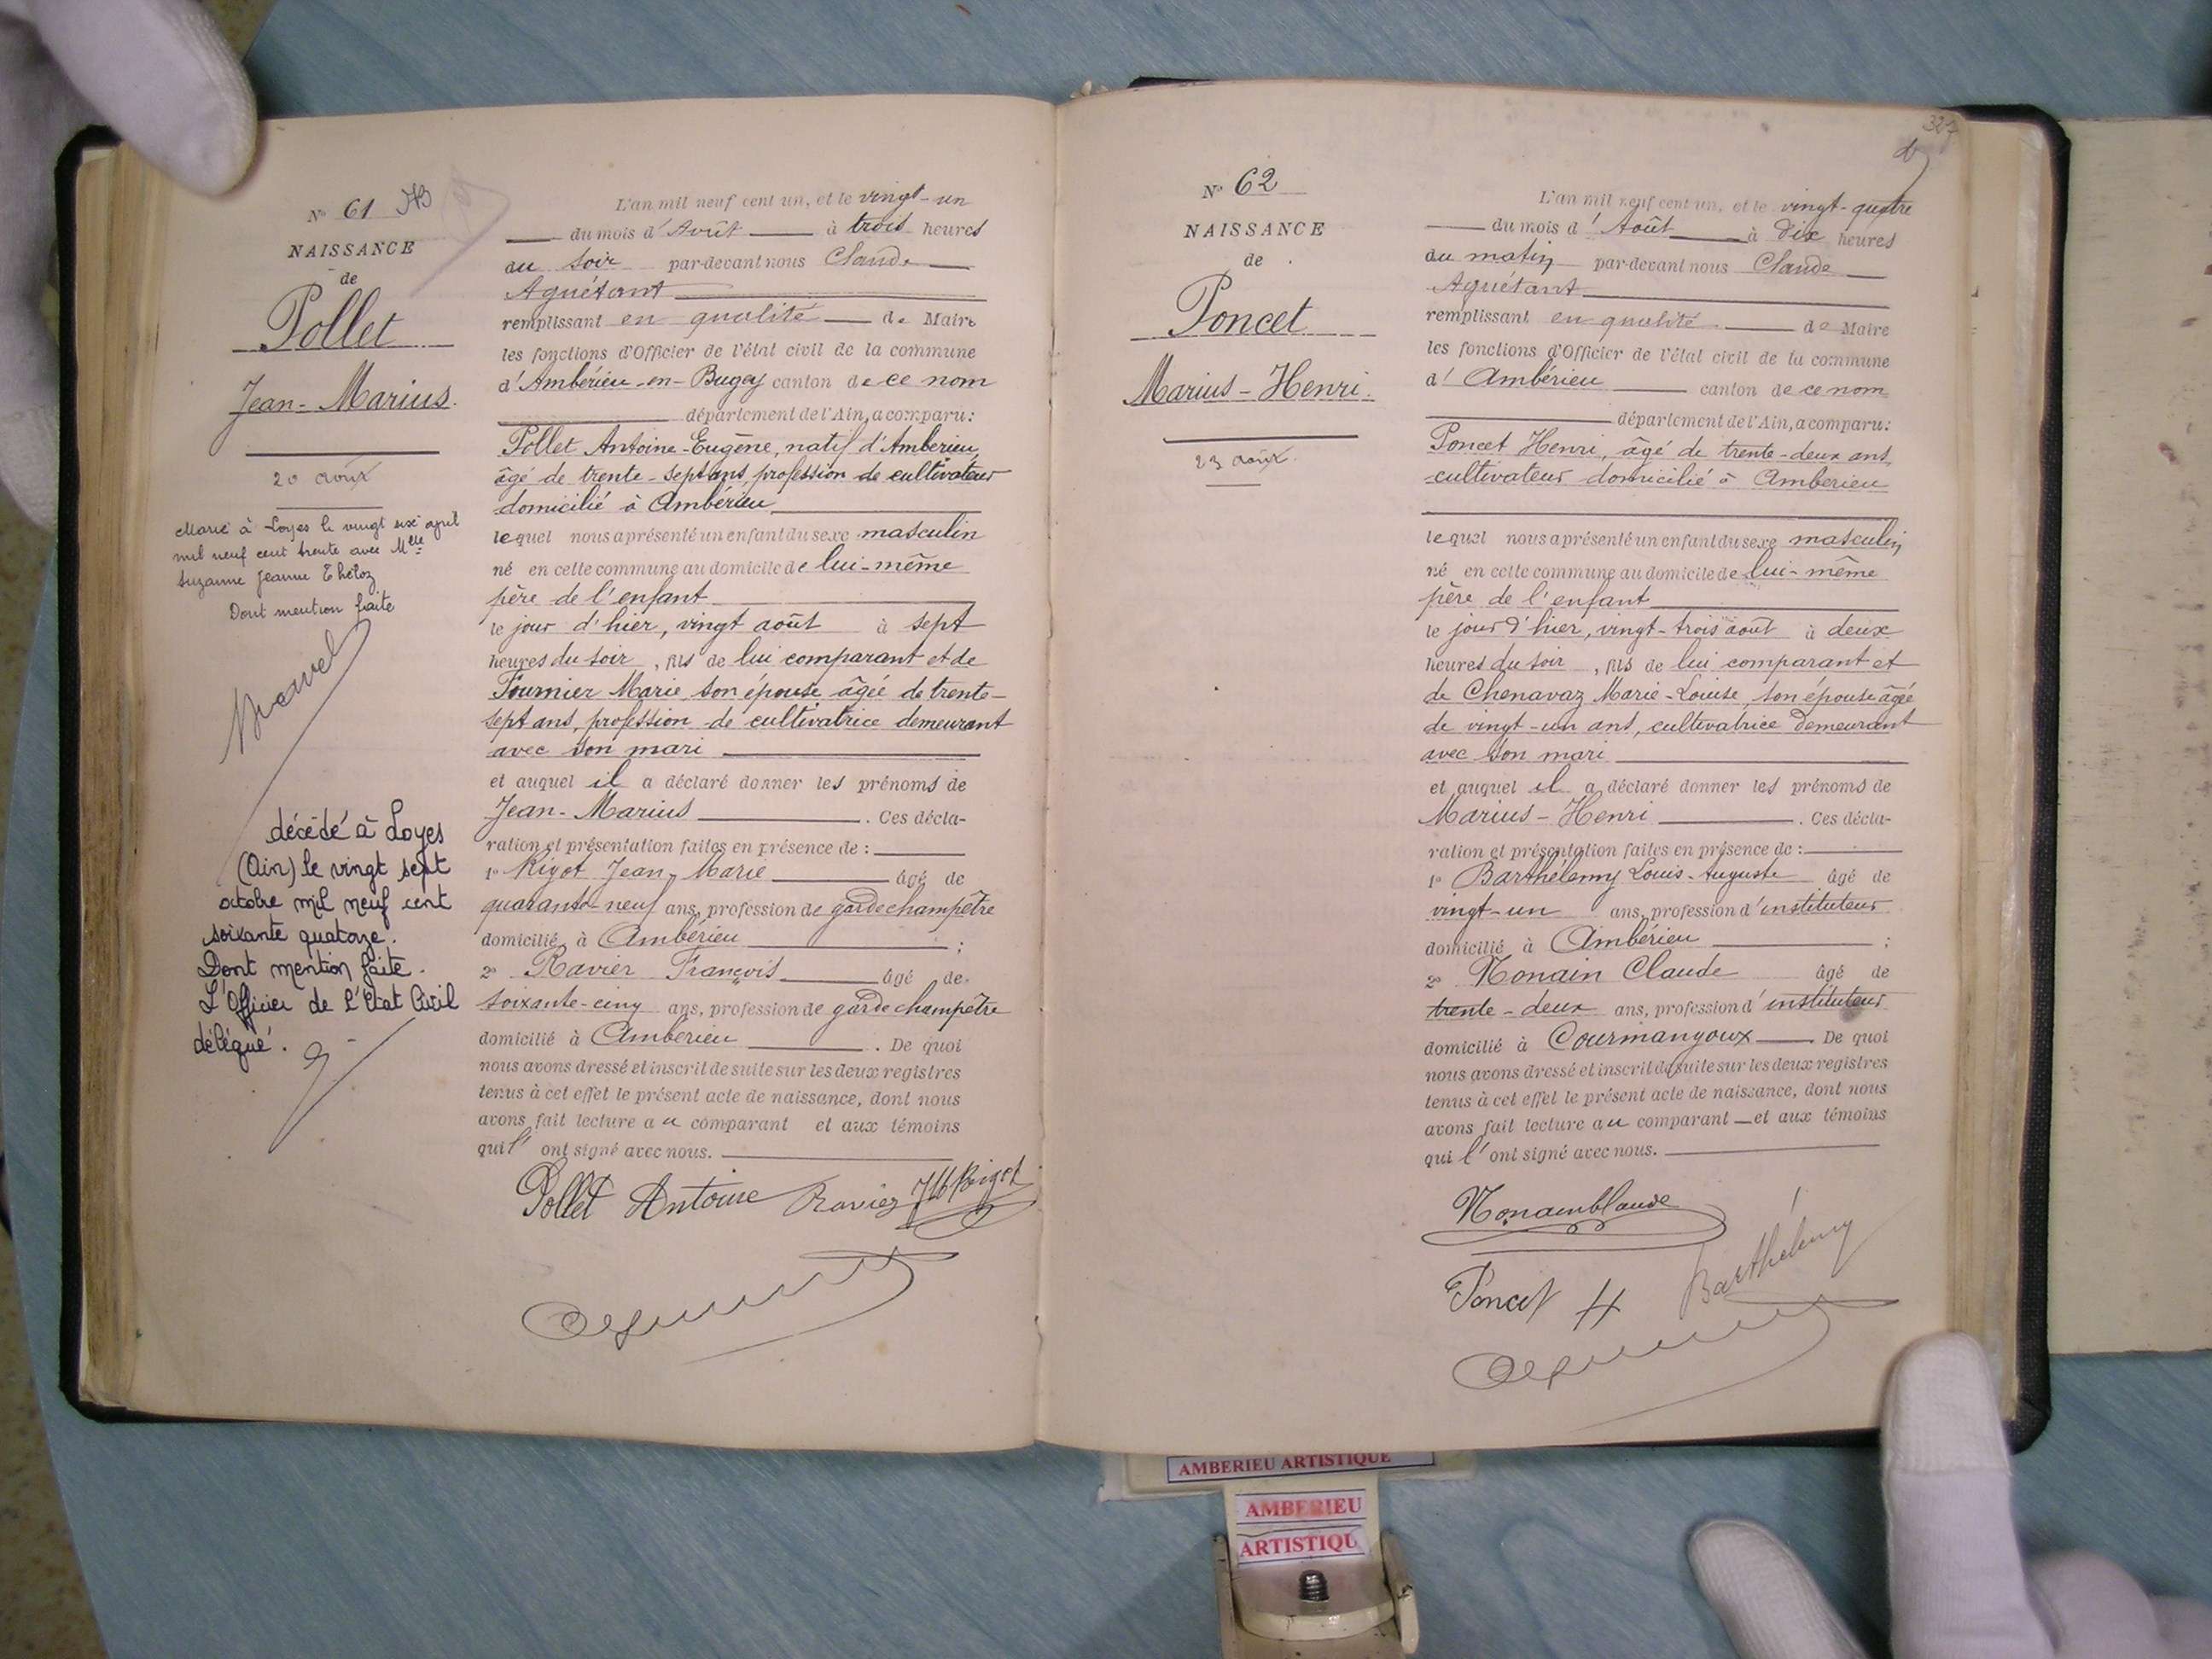 N° 61
NAISSANCE
de
Pollet
Jean-Marius.
20 août
Marié à Loyes le vingt six april
mil neuf cent trente avec Melle
Suzanne Jeanne Théloz
Dont mention faite
décédé à Loyes
(Ain) le vingt sept
octobre mil neuf cent
soixante quatorze.
Dont mention faite.
L'Officier de l'Etat Civil
délégué.
L'an mil neuf cent un, et le vingt-un
du mois d'Août à trois heures
du soir par-devant nous Claude
Aguétant
remplissant en qualité de Maire
les fonctions d'Officier de l'état civil de la commune
d'Ambérieu-en-Bugey canton de ce nom
département de l'Ain, a comparu:
Pollet Antoine-Eugène, natif d'Amberieu,
âgé de trente-sept ans, profession de cultivateur
domicilié à Ambérieu
lequel nous a présenté un enfant du sexe masculin
né en cette commune au domicile de lui-même
père de l'enfant
le jour d'hier, vingt août à sept
heures du soir, fils de lui comparant et de
Fournier Marie, son épouse âgée de trente-
sept ans, profession de cultivatrice demeurant
avec son mari
et auquel il a déclaré donner les prénoms de
Jean-Marius. Ces décla-
ration et présentation faites en présence de :
1° Rigot Jean-Marie âgé de
quarante-neuf ans, profession de garde champêtre
domicilié à Ambérieu ;
2° Ravier François âgé de
soixante-cinq ans, profession de garde champêtre
domicilié à Amberieu. De quoi
nous avons dressé et inscrit de suite sur les deux registres
tenus à cet effet le présent acte de naissance, dont nous
avons fait lecture au comparant et aux témoins
qui l'ont signé avec nous.
Pollet Antoine Ravier JM Rigot
327
N° 62
NAISSANCE
de
Poncet
Marius-Henri.
23 août
L'an mil neuf cent un, et le vingt-quatre
du mois d'Août à dix heures
du matin par-devant nous Claude
Aguétant
remplissant en qualité de Maire
les fonctions d'Officier de l'état civil de la commune
d'Ambérieu canton de ce nom
département de l'Ain, a comparu:
Poncet Henri, âgé de trente-deux ans,
cultivateur domicilié à Amberieu
lequel nous a présenté un enfant du sexe masculin
né en cette commune au domicile de lui-même
père de l'enfant
le jour d'hier, vingt-trois août à deux
heures du soir, fils de lui comparant et
de Chenavaz Marie-Louise, son épouse âgée
de vingt-un ans, cultivatrice demeurant
avec son mari
et auquel il a déclaré donner les prénoms de
Marius-Henri. Ces décla-
ration et présentation faites en présence de :
1° Barthélemy Louis-Auguste âgé de
vingt-un ans, profession d'instituteur
domicilié à Ambérieu ;
2° Monain Claude âgé de
trente-deux ans, profession d'instituteur
domicilié à Courmangoux. De quoi
nous avons dressé et inscrit de suite sur les deux registres
tenus à cet effet le présent acte de naissance, dont nous
avons fait lecture au comparant et aux témoins
qui l'ont signé avec nous.
Monain Claude
Barthélemy
Poncet H
AMBERIEU ARTISTIQUE
AMBERIEU
ARTISTIQU